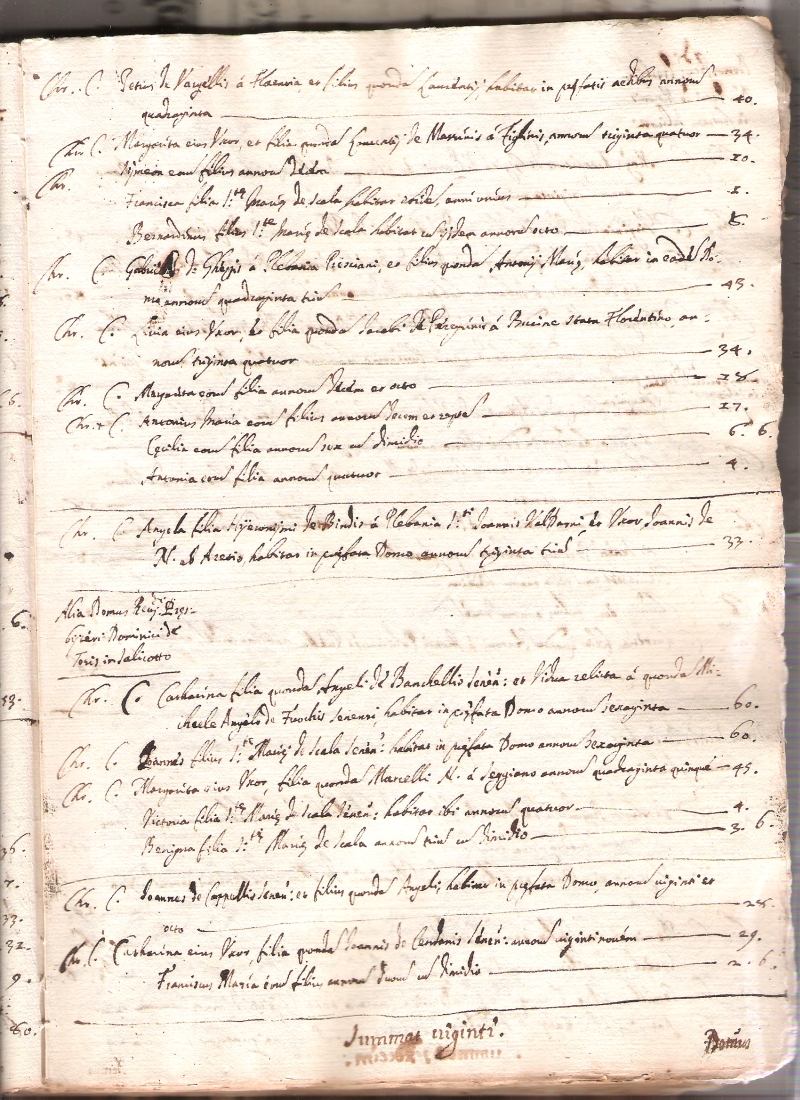 Chr. C. Petrus de Vargellis à Flaenria et filius quondā Laurentij habitat in pr̃fatis aedibus annorū
quadraginta — 40.
Chr. C. Margarita eius Vxor, et filia quondā Laurentij de Massinis à Fighinis, annorū triginta quatuor — 34.
Chr. eorū filius annorū decem — 10.
Francisca filia S.tæ Mariæ de Scala habitat ibidē, anni unius — 1.
Bernardinus filius S.tæ Mariæ de Scala habitat ibidem annorū octo — 8.
Chr. C. Gabriel de Gheggis à Plebania Presciani, et filius quondā Antonij Mariæ, habitat in eadē Do-
mo, annorū quadraginta trium — 43.
Chr. C. Livia eius Vxor, et filia quondā Jacobi de Peregrinis à Bucine Statu Florentino, an-
norū triginta quatuor — 34.
Chr. C. Margarita eorū filia annorū decem et octo — 18.
Chr. C. Antonius Maria eorū filius annorū decem et septē — 17.
Cecilia eorū filia annorū sex cū dimidio — 6. 6.
Antonia eorū filia annorū quatuor — 4.
Chr. C. Angela filia Hyeronimi de Bindis à Plebania S.ti Joannis Val Darni, et Vxor Joannis de
N. ab Aretio, habitat in pr̃fata Domo annorū triginta triū — 33.
Alia Domus
Dominici de
Toris in Salicotto
Chr. C. Catharina filia quondā Angeli de Banchellis Senen: et Vidua relicta à quondā Mi-
chaele Angelo de Fuochis Senensi, habitat in pr̃fata Domo annorū sexaginta — 60.
Chr. C. Joannes filius S.tæ Mariæ de Scala Senen: habitat in pr̃fata Domo annorū sexaginta — 60.
Chr. C. Margarita eius Vxor, filia quondā Marcelli N. à Seggiano annorū quadraginta quinque — 45.
Victoria filia S.tæ Mariæ de Scala Senen: habitat ibi annorū quatuor — 4.
Benigna filia S.tæ Mariæ de Scala annorū triū cū dimidio — 3. 6.
Chr. C. Joannes de Cappellis Senen: et filius quondā Angeli, habitat in pr̃fata Domo, annorū viginti et
octo — 28.
Chr. C. Catharina eius Vxor filia quondā Joannis de Cendonis Senen: annorū vigintinovem — 29.
Franciscus Maria eorū filius annorū duorū cū dimidio — 2. 6.
Summat viginti.
Domus